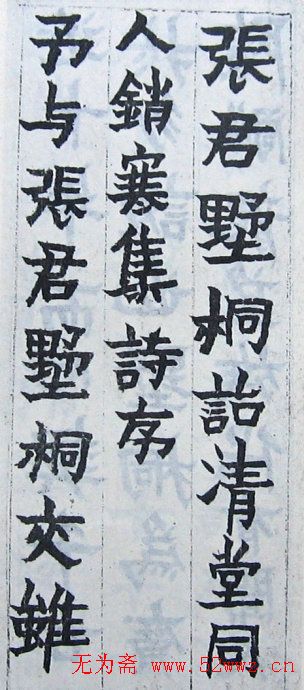 張君墅桐詒清堂同
人銷寒集詩序
予与張君墅桐交雖
无为斋 www.52wwz.cn